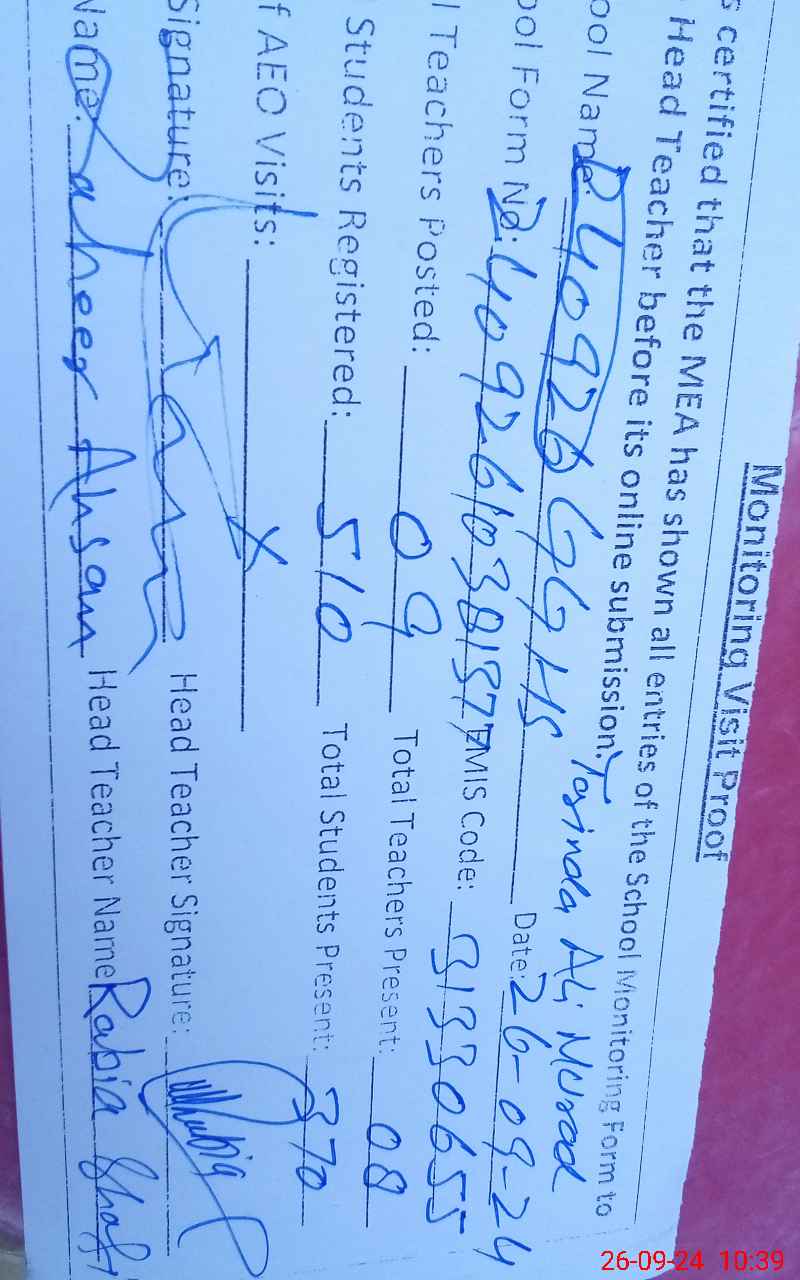 Monitoring Visit Proof
s certified that the MEA has shown all entries of the School Monitoring Form to
Head Teacher before its online submission.
ool Name: 240926 GGHS Tarinda Ali Murad
ool Form No: 24092610381377 Date: 26-09-24
l Teachers Posted: 09 EMIS Code: 31330655
Students Registered: 510 Total Teachers Present: 08
f AEO Visits: X Total Students Present: 370
Signature: Head Teacher Signature:
Name: Zaheer Ahsan Head Teacher Name Rabia Shafi
26-09-24 10:39